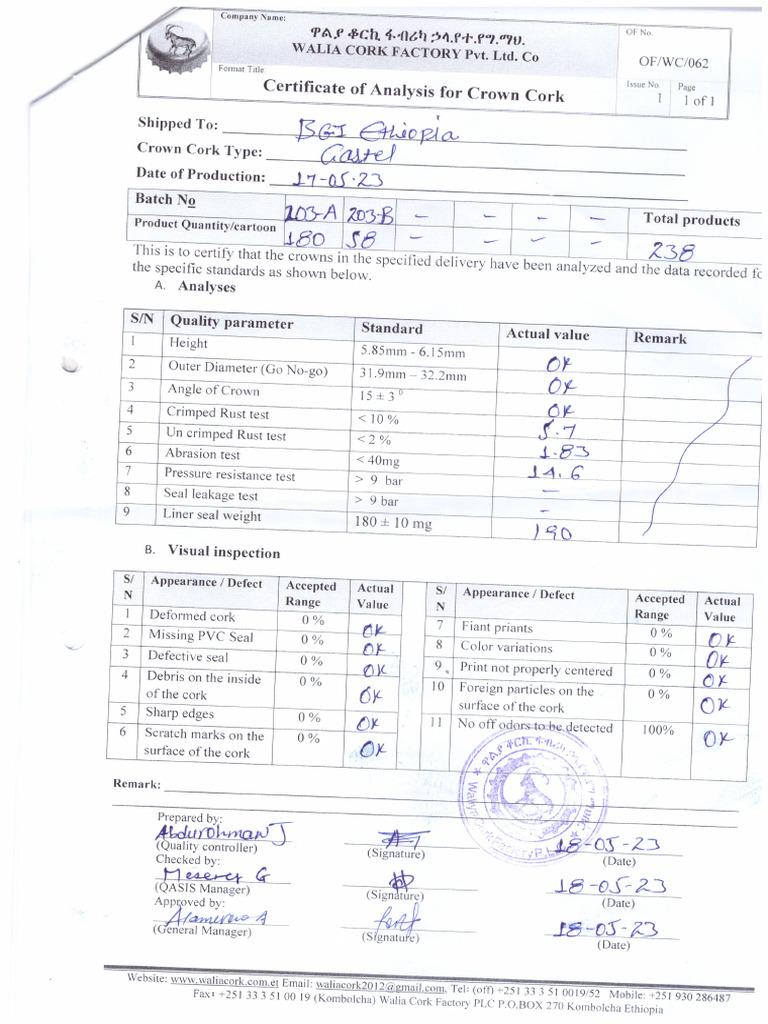 Company Name:
ዋልያ ቆርኪ ፋብሪካ ኃላ.የተ.የግ.ማህ.
WALIA CORK FACTORY Pvt. Ltd. Co
OF No.
OF/WC/062
Format Title
Certificate of Analysis for Crown Cork
Issue No.
1
Page
1 of 1
Shipped To: BGI Ethiopia
Crown Cork Type: Castel
Date of Production: 17-05-23
Batch No 203-A 203-B - - - - Total products
Product Quantity/cartoon 180 58 - - - - 238
This is to certify that the crowns in the specified delivery have been analyzed and the data recorded fo
the specific standards as shown below.
A. Analyses
S/N Quality parameter Standard Actual value Remark
1 Height 5.85mm - 6.15mm OK
2 Outer Diameter (Go No-go) 31.9mm – 32.2mm OK
3 Angle of Crown 15 ± 3 0 OK
4 Crimped Rust test < 10 % 5.7
5 Un crimped Rust test < 2 % 1.83
6 Abrasion test < 40mg 14.6
7 Pressure resistance test > 9 bar -
8 Seal leakage test > 9 bar -
9 Liner seal weight 180 ± 10 mg 190
B. Visual inspection
S/N Appearance / Defect Accepted Range Actual Value
1 Deformed cork 0 % OK
2 Missing PVC Seal 0 % OK
3 Defective seal 0 % OK
4 Debris on the inside of the cork 0 % OK
5 Sharp edges 0 % OK
6 Scratch marks on the surface of the cork 0 % OK
S/N Appearance / Defect Accepted Range Actual Value
7 Fiant priants 0 % OK
8 Color variations 0 % OK
9 Print not properly centered 0 % OK
10 Foreign particles on the surface of the cork 0 % OK
11 No off odors to be detected 100% OK
Remark:
Prepared by:
Abdurohman J 18-05-23
(Quality controller) (Signature) (Date)
Checked by:
Meseret G 18-05-23
(QASIS Manager) (Signature) (Date)
Approved by:
18-05-23
(General Manager) (Signature) (Date)
Website: www.waliacork.com.et Email: waliacork2012@gmail.com, Tel: (off) +251 33 3 51 0019/52 Mobile: +251 930 286487
Fax: +251 33 3 51 00 19 (Kombolcha) Walia Cork Factory PLC P.O.BOX 270 Kombolcha Ethiopia